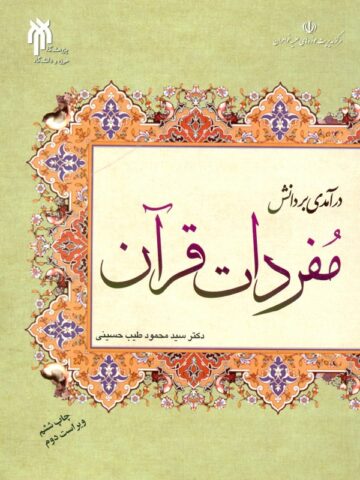 پژوهشگاه
حوزه و دانشگاه
درآمدی بر دانش
مُفردات قرآن
دکتر سید محمود طیب حسینی
چاپ ششم
ویراست دوم